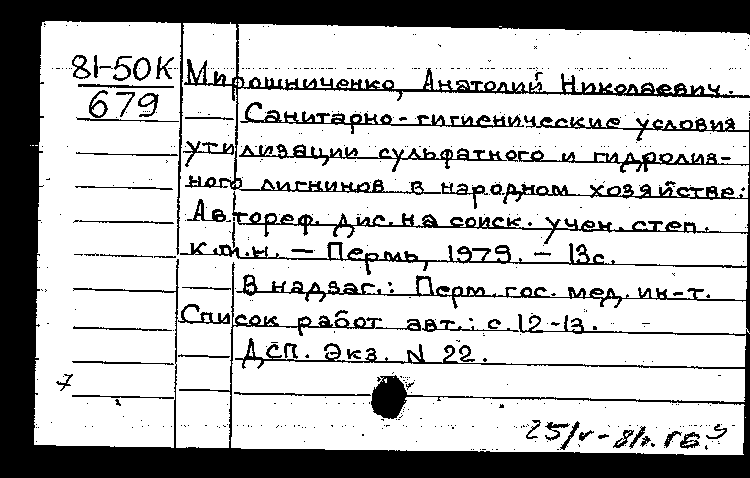 81-50К
679
Мирошниченко, Анатолий Николаевич.
Санитарно-гигиенические условия
утилизации сульфатного и гидролиз-
ного лигнинов в народном хозяйстве:
Автореф. дис. на соиск. учен. степ.
к.м.н. — Пермь, 1979. — 13с.
В надзаг.: Перм. гос. мед. ин-т.
Список работ авт.: с. 12-13.
ДСП. Экз. N 22.
7